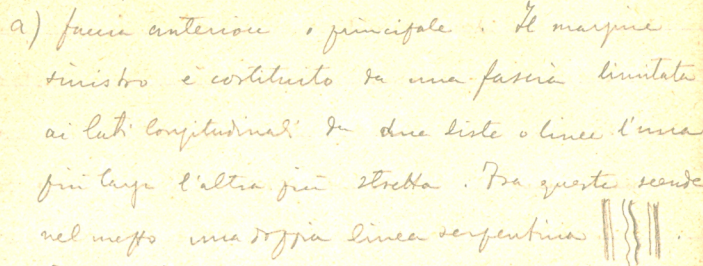 a) faccia anteriore o principale. Il margine
sinistro è costituito da una fascia limitata
ai lati longitudinali da due liste o linee l'una
più larga l'altra più stretta. Fra queste scende
nel mezzo una doppia linea serpentina